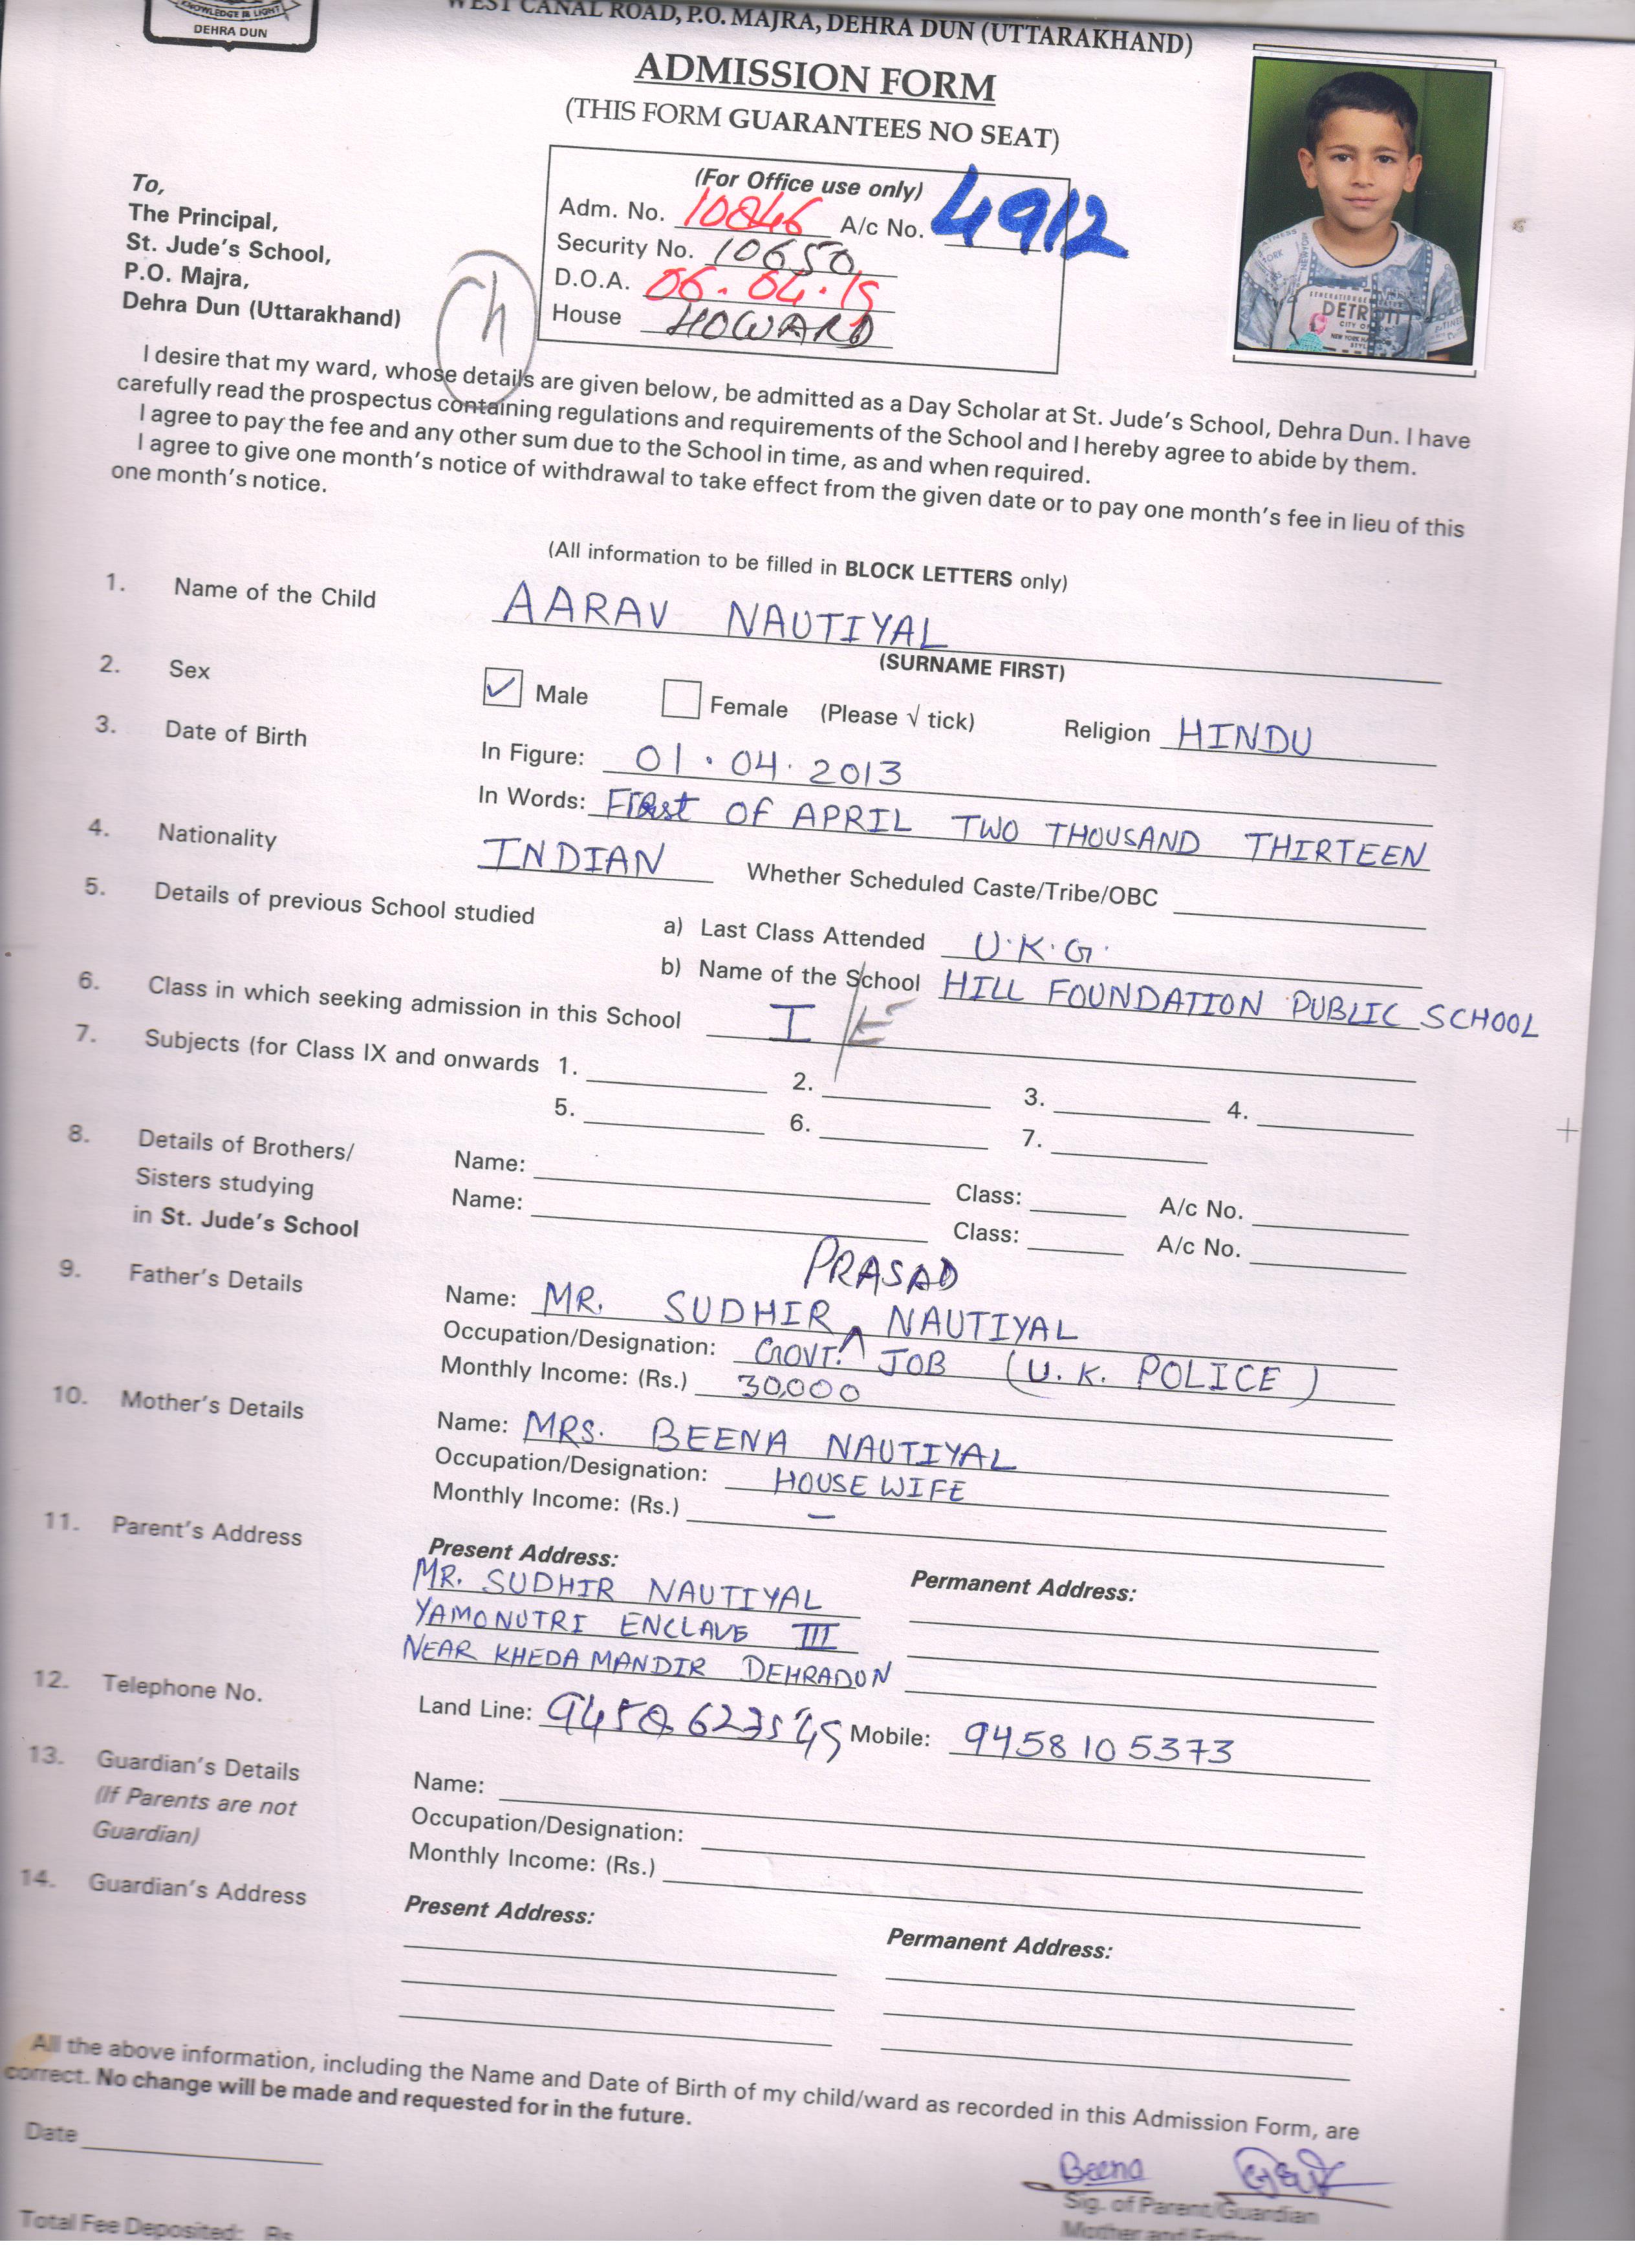 KNOWLEDGE IS LIGHT
DEHRA DUN
WEST CANAL ROAD, P.O. MAJRA, DEHRA DUN (UTTARAKHAND)
ADMISSION FORM
(THIS FORM GUARANTEES NO SEAT)
(For Office use only)
Adm. No. 10846 A/c No. 4912
Security No. 10650
D.O.A. 06.04.19
House HOWARD
To,
The Principal,
St. Jude's School,
P.O. Majra,
Dehra Dun (Uttarakhand)
I desire that my ward, whose details are given below, be admitted as a Day Scholar at St. Jude's School, Dehra Dun. I have
carefully read the prospectus containing regulations and requirements of the School and I hereby agree to abide by them.
I agree to pay the fee and any other sum due to the School in time, as and when required.
I agree to give one month's notice of withdrawal to take effect from the given date or to pay one month's fee in lieu of this
one month's notice.
(All information to be filled in BLOCK LETTERS only)
1. Name of the Child AARAV NAUTIYAL
(SURNAME FIRST)
2. Sex ✓ Male Female (Please √ tick) Religion HINDU
3. Date of Birth In Figure: 01.04.2013
In Words: FIRst OF APRIL TWO THOUSAND THIRTEEN
4. Nationality INDIAN Whether Scheduled Caste/Tribe/OBC
5. Details of previous School studied a) Last Class Attended U.K.G.
b) Name of the School HILL FOUNDATION PUBLIC SCHOOL
6. Class in which seeking admission in this School I / E
7. Subjects (for Class IX and onwards 1. 2. 3. 4.
5. 6. 7.
8. Details of Brothers/ Name: Class: A/c No.
Sisters studying Name: Class: A/c No.
in St. Jude's School
9. Father's Details Name: MR. SUDHIR ^ PRASAD NAUTIYAL
Occupation/Designation: GOVT. JOB (U.K. POLICE)
Monthly Income: (Rs.) 30,000
10. Mother's Details Name: MRS. BEENA NAUTIYAL
Occupation/Designation: HOUSE WIFE
Monthly Income: (Rs.) –
11. Parent's Address Present Address: Permanent Address:
MR. SUDHIR NAUTIYAL
YAMONUTRI ENCLAVE III
NEAR KHEDA MANDIR DEHRADUN
12. Telephone No. Land Line: Mobile: 9458105373
13. Guardian's Details Name:
(If Parents are not Occupation/Designation:
Guardian) Monthly Income: (Rs.)
14. Guardian's Address Present Address: Permanent Address:
All the above information, including the Name and Date of Birth of my child/ward as recorded in this Admission Form, are
correct. No change will be made and requested for in the future.
Date
Beena
Sig. of Parent/Guardian
Mother and Father
Total Fee Deposited: Rs.